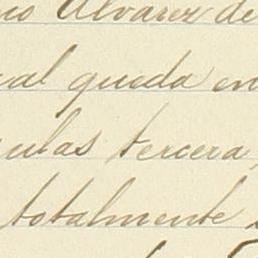 Alvarez de
queda en
tercera,
totalmente